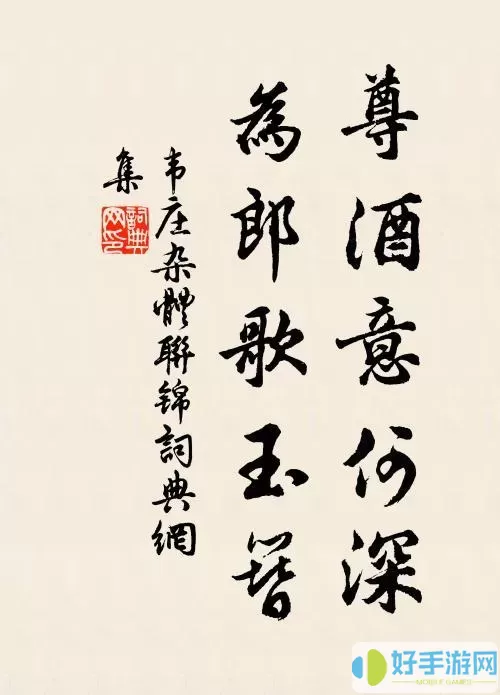 尊酒意何深
為郎歌玉簪
韦庄杂體聯錦詞典網
集
詞典網印
好手游网
MOBILE GAMES